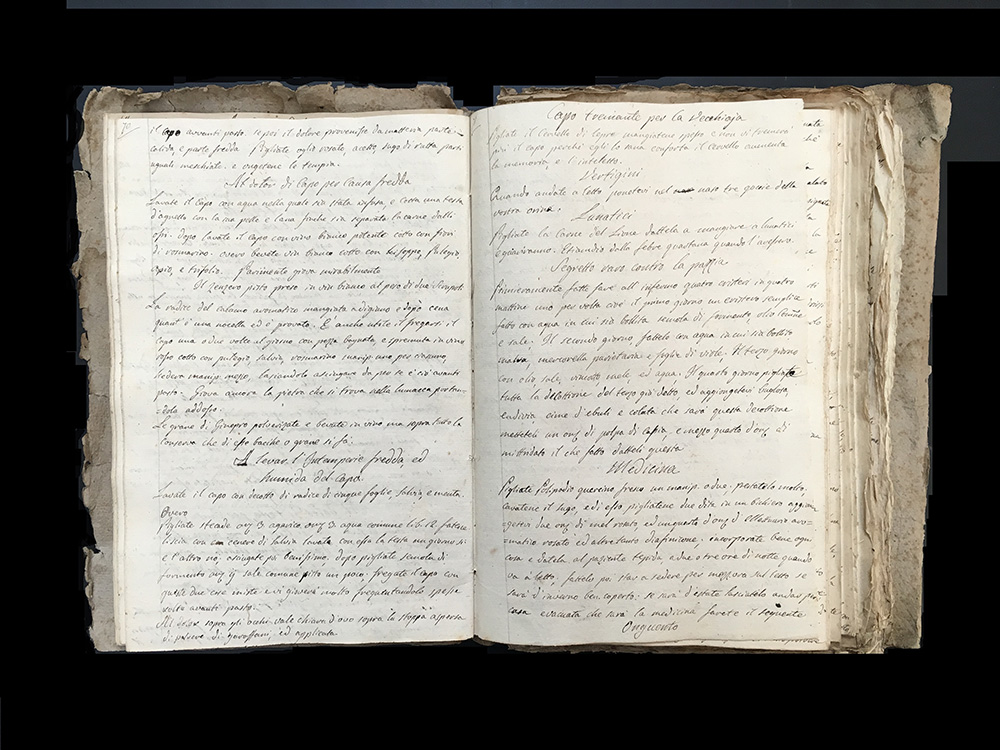 70
il capo avvanti pasto. se poi il dolore provenisse da matteria parte
calida, e parte fredda. Pigliate oglio rosato, acetto, sugo di rutta parti
uguali meschiate. e ongetene le tempia.
Al dolor di Capo per causa fredda
Lavate il capo con aqua nella quale sia stata infusa, e cotta una testa
d'agnello con la sua pelle e lana finche sia separata la carne dalli
ossi. dopo lavate il capo con vino bianco potente cotto con fiori
di rosmarino. overo bevete vin bianco cotto con Issoppo, Pulegio,
apio, e trifolio. Parimente giova mirabilmente
Il Zenzero pisto preso in vin bianco al peso di due
La radice del calamo aromatico mangiata a digiuno o dopo cena
quant'è una nocella ed è provato. E anche utile il fregarsi il
Capo una o due volte al giorno con pezza bagnata, e spremuta in vino
rosso cotto con pulegio, salvia, rosmarino manip: uno per ciascuno,
hedera manip: mezzo, lasciandolo asciugare da per se e ciò avanti
pasto. Giova ancora la pietra che si trova nella lumacca portan=
=dola addosso.
Le grane di Ginepro polverizate e bevute in vino ma sopra tutto la
Conserva che di esse bacche o grane si fà.
A levar l'Intemperie fredda, ed
humida del Capo.
Lavate il capo con decotto di radice di cinque foglie, salvia, e menta.
Overo
Pigliate Steade onz 3 agarico onz 3 aqua comune lib: 12 fattene
lissia con cenere di salvia lavate con essa la testa un giorno si
e l'altro nò, asciugate poi benissimo, dopo pigliate semola di
formento onz ij sale comune pisto un poco: fregate il capo con
queste due cose unite e vi gioverà molto frequentandolo spesse
volte avanti pasto.
Al dolor sopra gli occhi vale chiara d'ovo sopra la stoppa aspersa
di polvere di garoffani, ed applicata
Capo tremante per la Vecchiaja
Pigliate il Cervello di lepre mangiatene spesso e non vi tremerà
più il capo perchè egli lo mira conforta il cervello aumenta
la memoria, e l'inteletto.
Vertigini
Quando andate a letto ponetevi nel naso tre goccie della
vostra orina.
Lunatici
Pigliate la Carne del Lione dattela a mangiare a lunatici
e guariranno. Etiandio dalla febre quartana quando l'avessero.
Segretto raro contro la pazzia
Primieramente fatte fare all'infermo quatro cristeri in quatro
mattine uno per volta cioè il primo giorno un cristere semplice
fatto con aqua in cui sia bollita semola di formento, olio comune
e sale. Il secondo giorno fattelo con aqua in cui sia bollito
malva, mercorella parietaria e foglie di viole. Il terzo giorno
con olio, sale, vincotto mele ed aqua. Il quarto giorno pigliate
tutta la decottione del terzo già detto, ed aggiongetevi buglosa,
endivia cime di ebuli e colata che sarà questa decottione
mettetevi un onz: di polpa di Cassia, e mezzo quarto d'onz: di
mitridato il che fatto datteli questa
Medicina
Pigliate Polipodio quercino fresco un manip: o due, pestatelo molto,
cavatene il sugo, e di esso pigliatene due dita in un bichiero aggion=
getevi due onz: di mel rosato, ed un quarto d'onz: d'ellatuario aro=
=matico rosato ed altretanto diafinicone, incorporate bene ogni
cosa e datela al patiente tepida a due o tre ore di notte quando
và à letto, fattelo poi stare a sedere per mezz ora sul letto se
sarà d'inverno ben coperto: se sarà d'estate lasciatelo andar per
casa evacuata che sarà la medicina farete il seguente
Onguento